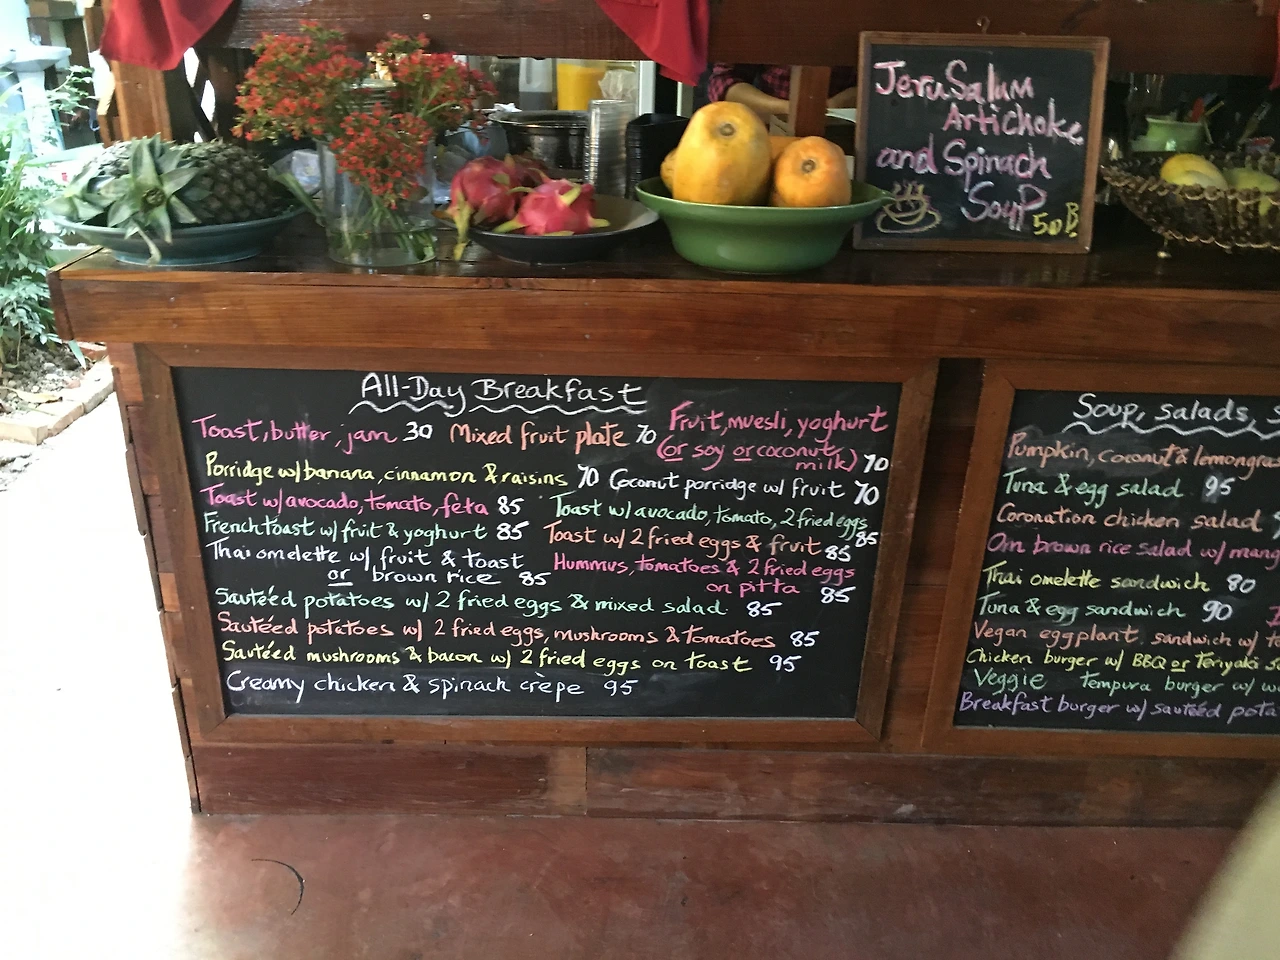 JeruSalum
Artichoke
and Spinach
Soup
50 B
All-Day Breakfast
Toast, butter, jam 30
Mixed fruit plate 70
Fruit, muesli, yoghurt
(or soy or coconut
milk) 70
Porridge w/ banana, cinnamon & raisins 70
Coconut porridge w/ fruit 70
Toast w/ avocado, tomato, feta 85
Toast w/ avocado, tomato, 2 fried eggs
85
French toast w/ fruit & yoghurt 85
Toast w/ 2 fried eggs & fruit 85
Thai omelette w/ fruit & toast
or brown rice 85
Hummus, tomatoes & 2 fried eggs
on pitta 85
Sautéed potatoes w/ 2 fried eggs & mixed salad 85
Sautéed potatoes w/ 2 fried eggs, mushrooms & tomatoes 85
Sautéed mushrooms & bacon w/ 2 fried eggs on toast 95
Creamy chicken & spinach crèpe 95
Soup, salads,
Pumpkin, coconut & lemongras
Tuna & egg salad 95
Coronation chicken salad
Om brown rice salad w/ mang
Thai omelette sandwich 80
Tuna & egg sandwich 90
Vegan eggplant sandwich w/
Chicken burger w/ BBQ or Teriyaki
Veggie Tempura burger w/
Breakfast burger w/ sautéed pota